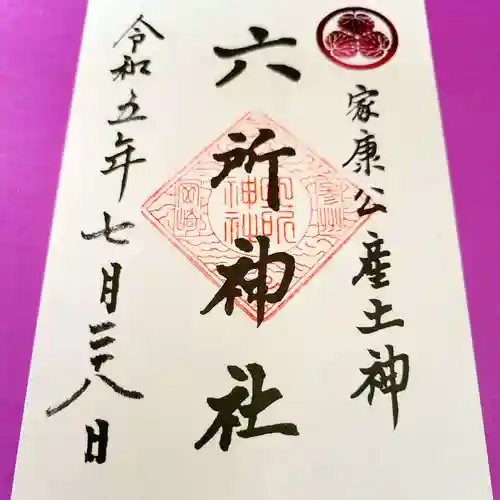 家康公産土神
六所神社
令和五年七月二十八日
参州
六所神社
岡崎